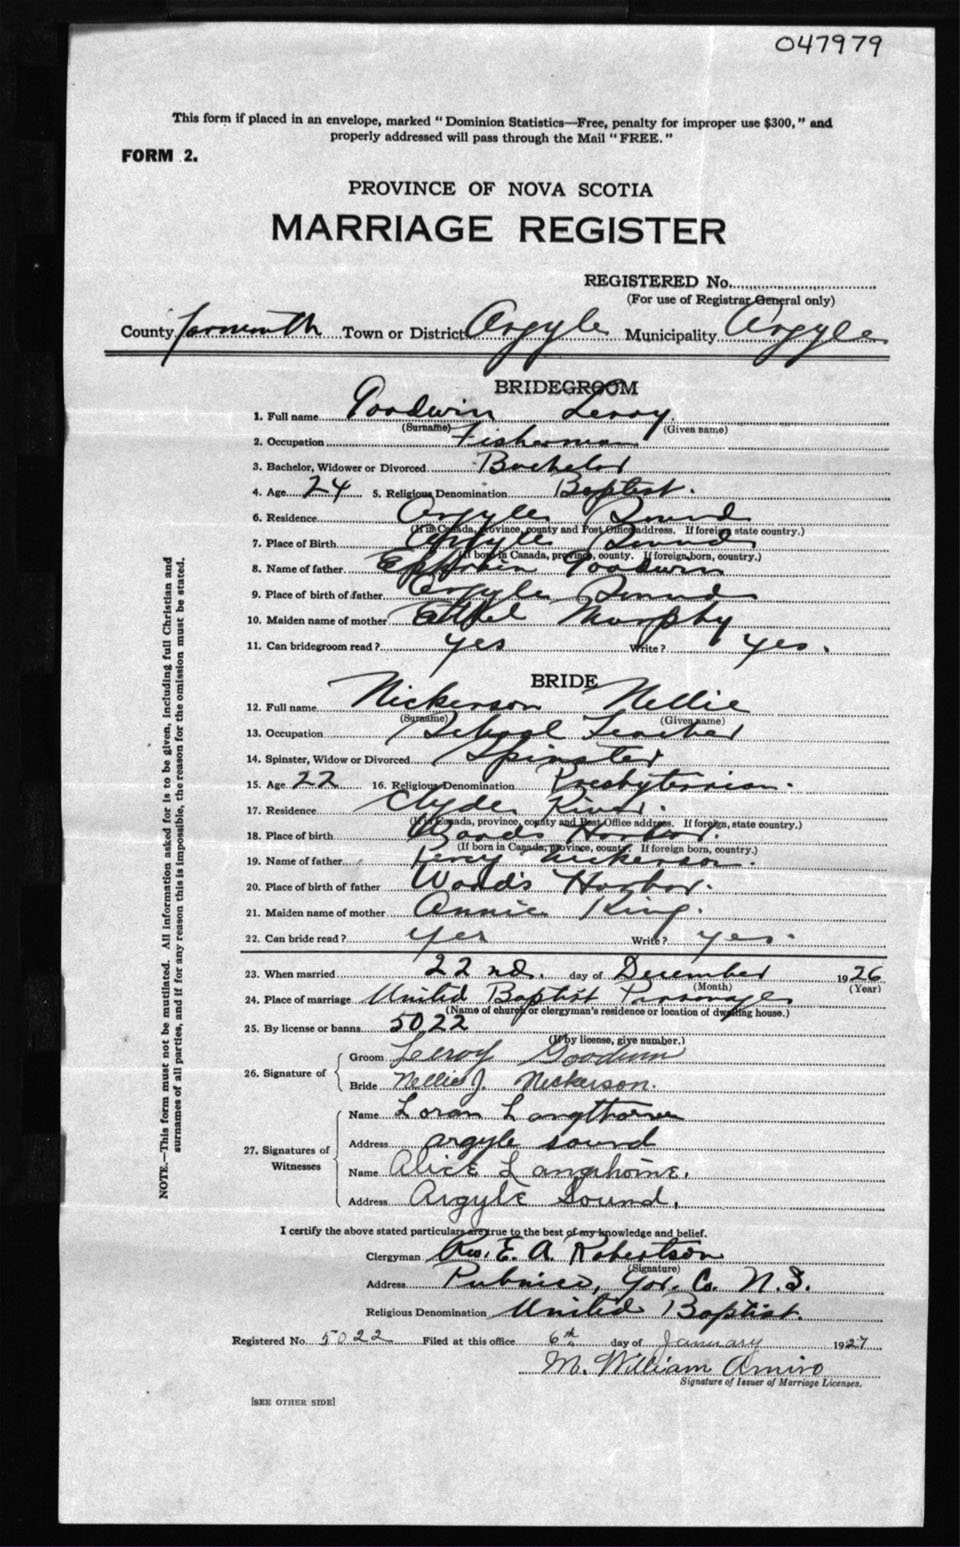 047979
This form if placed in an envelope, marked "Dominion Statistics—Free, penalty for improper use $300," and
properly addressed will pass through the Mail "FREE."
FORM 2.
PROVINCE OF NOVA SCOTIA
MARRIAGE REGISTER
REGISTERED No.
(For use of Registrar General only)
County Yarmouth Town or District Argyle Municipality Argyle
BRIDEGROOM
1. Full name Goodwin Leroy
(Surname) (Given name)
2. Occupation Fisherman
3. Bachelor, Widower or Divorced Bachelor
4. Age 24 5. Religious Denomination Baptist.
6. Residence Argyle Sound
(If in Canada, province, county and Post Office address. If foreign state country.)
7. Place of Birth Argyle Sound
(If born in Canada, province, county. If foreign born, country.)
8. Name of father Ephraim Goodwin
9. Place of birth of father Argyle Sound
10. Maiden name of mother Ethel Murphy
11. Can bridegroom read? yes Write? yes.
BRIDE
12. Full name Nickerson Nellie
(Surname) (Given name)
13. Occupation School Teacher
14. Spinster, Widow or Divorced Spinster
15. Age 22 16. Religious Denomination Presbyterian.
17. Residence Clyde River.
(If in Canada, province, county and Post Office address. If foreign, state country.)
18. Place of birth Woods Harbor.
(If born in Canada, province, county. If foreign born, country.)
19. Name of father Percy Nickerson.
20. Place of birth of father Wood's Harbor.
21. Maiden name of mother Annie King.
22. Can bride read? yes Write? yes.
23. When married 22nd. day of December 1926
(Month) (Year)
24. Place of marriage United Baptist Parsonage
(Name of church or clergyman's residence or location of dwelling house.)
25. By license or banns 5022
(If by license, give number.)
26. Signature of
Groom Leroy Goodwin
Bride Nellie J. Nickerson.
27. Signatures of Witnesses
Name Loran Langthorne
Address argyle sound
Name Alice Langthorne.
Address Argyle Sound.
I certify the above stated particulars are true to the best of my knowledge and belief.
Clergyman Rev. E. A. Robertson
(Signature)
Address Pubnico, Yar. Co. N.S.
Religious Denomination United Baptist.
Registered No. 5022 Filed at this office 6th day of January 1927
M. William Amiro
Signature of Issuer of Marriage Licenses.
[SEE OTHER SIDE]
NOTE.—This form must not be mutilated. All information asked for is to be given, including full Christian and
surnames of all parties, and if for any reason this is impossible, the reason for the omission must be stated.